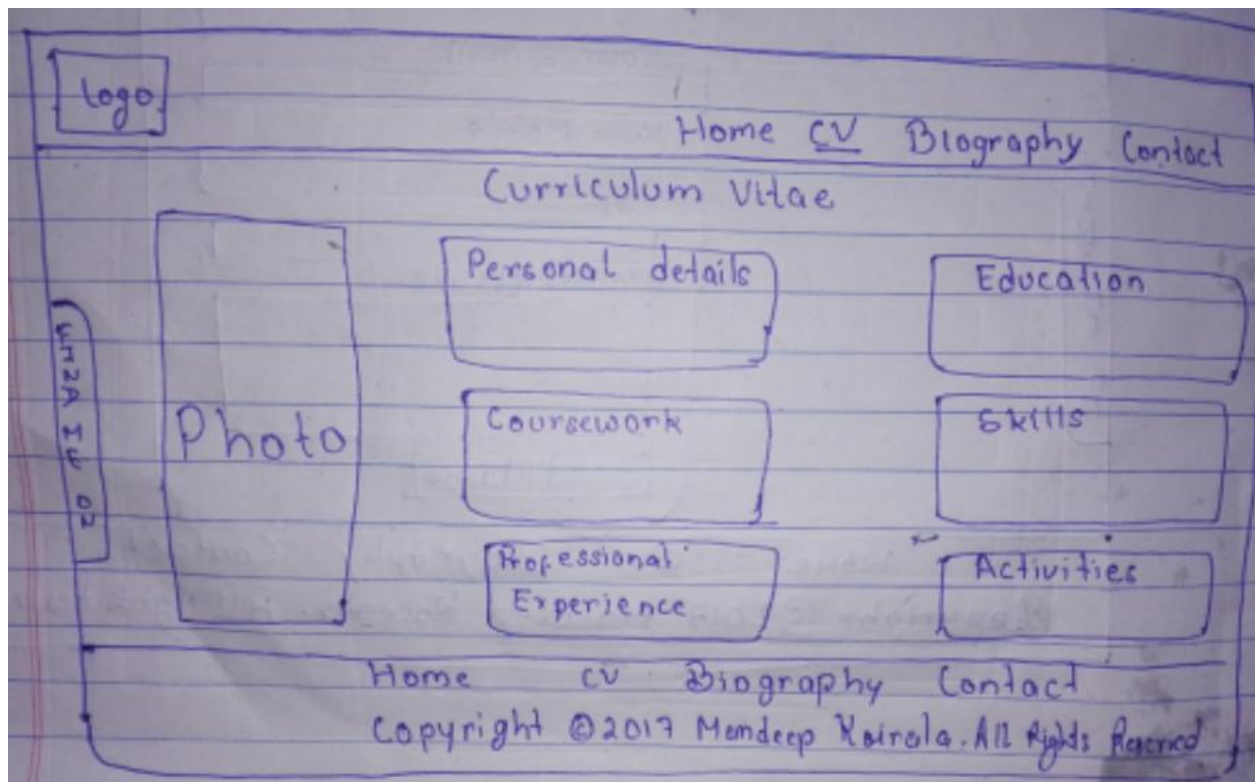 Logo
Home CV Biography Contact
Curriculum Vitae
Personal details
Education
Photo
Coursework
Skills
Professional
Experience
Activities
Home CV Biography Contact
Copyright ©2017 Mandeep Koirala. All Rights Reserved